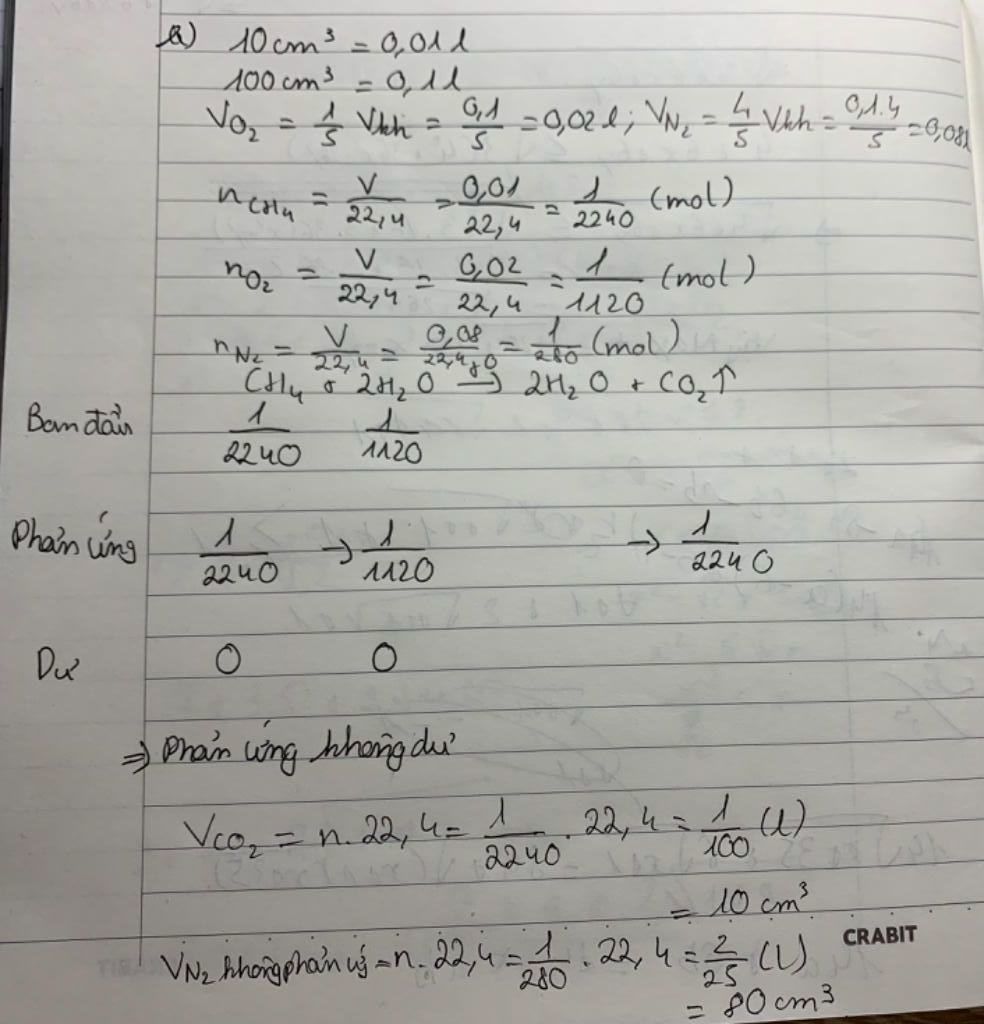 a) 10 cm³ = 0,01 l
100 cm³ = 0,1 l
V O₂ = 1/5 Vkk = 0,1/5 = 0,02 l ; V N₂ = 4/5 Vkk = 0,1.4/5 = 0,08 l
n CH₄ = V/22,4 = 0,01/22,4 = 1/2240 (mol)
n O₂ = V/22,4 = 0,02/22,4 = 1/1120 (mol)
n N₂ = V/22,4 = 0,08/22,4 = 1/280 (mol)
CH₄ + 2H₂O → 2H₂O + CO₂↑
Ban đầu 1/2240 1/1120
Phản ứng 1/2240 → 1/1120 → 1/2240
Dư 0 0
⇒ Phản ứng không dư
V CO₂ = n. 22,4 = 1/2240 . 22,4 = 1/100 (l)
= 10 cm³
CRABIT
V N₂ không phản ứ = n. 22,4 = 1/280 . 22,4 = 2/25 (l)
= 80 cm³